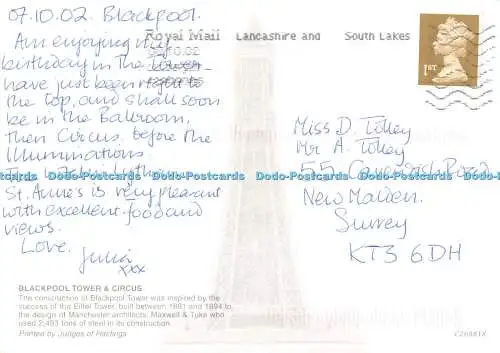 07.10.02. Blackpool.
Am enjoying my
birthday in the Tower
have just been right to
the top, and shall soon
be in the Ballroom,
then Circus, before the
Illuminations
The hotel
St. Anne's is very pleasant
with excellent food and
views.
Love.
Julia
xxx
BLACKPOOL TOWER & CIRCUS
The construction of Blackpool Tower was inspired by the
success of the Eiffel Tower, built between 1891 and 1894 to
the design of Manchester architects, Maxwell & Tuke who
used 2,493 tons of steel in its construction.
Printed by Judges of Hastings
Royal Mail Lancashire and South Lakes
1ST
Miss D. Tolley
Mr A. Tolley
55 Road
New Malden.
Surrey
KT3 6DH
C26881X
Dodo-Postcards Dodo-Postcards Dodo-Postcards Dodo-Postcards